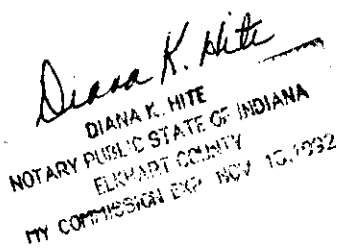 Diana K. Hite
DIANA K. HITE
NOTARY PUBLIC STATE OF INDIANA
ELKHART COUNTY
MY COMMISSION EXP NOV 10,1992